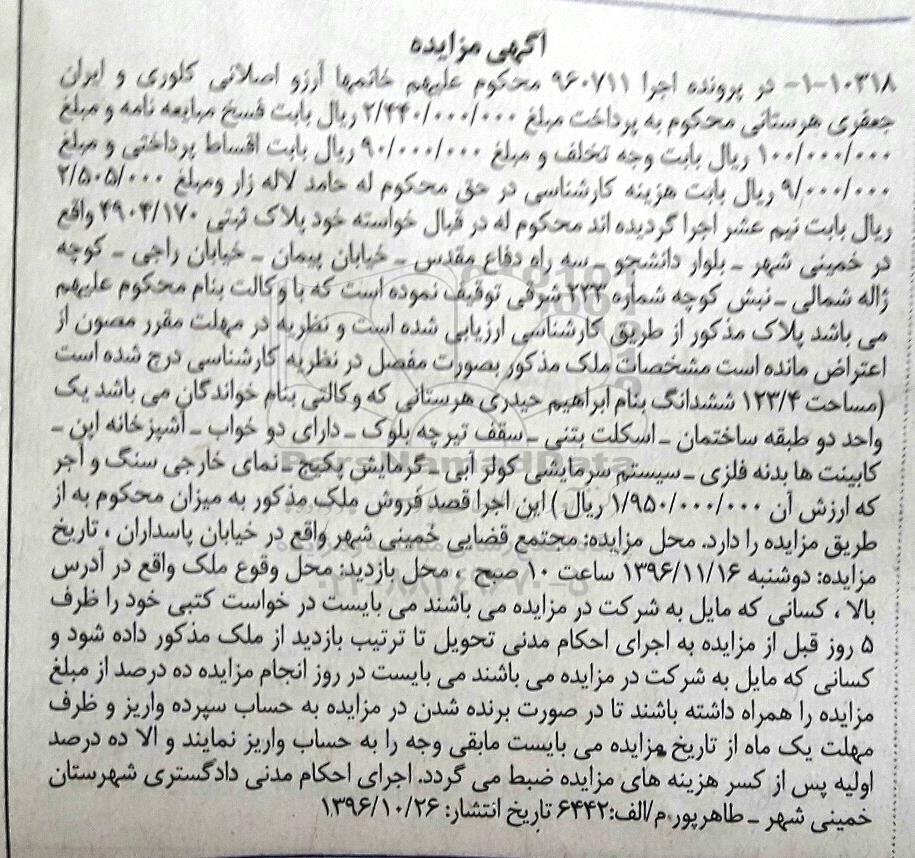 آگهی مزایده
۱-۱۰۳۱۸- در پرونده اجرا ۹۶۰۷۱۱ محکوم علیهم خانمها آرزو اصلانی کلوری و ایران
جعفری هرستانی محکوم به پرداخت مبلغ ۲/۴۴۰/۰۰۰/۰۰۰ ریال بابت فسخ مبایعه نامه و مبلغ
۱۰۰/۰۰۰/۰۰۰ ریال بابت وجه تخلف و مبلغ ۹۰/۰۰۰/۰۰۰ ریال بابت اقساط پرداختی و مبلغ
۹/۰۰۰/۰۰۰ ریال بابت هزینه کارشناسی در حق محکوم له حامد لاله زار ومبلغ ۲/۵۰۵/۰۰۰
ریال بابت نیم عشر اجرا گردیده اند محکوم له در قبال خواسته خود پلاک ثبتی ۴۹۰۴/۱۷۰ واقع
در خمینی شهر ـ بلوار دانشجو ـ سه راه دفاع مقدس ـ خیابان پیمان ـ خیابان راجی ـ کوچه
ژاله شمالی ـ نبش کوچه شماره ۲۲۳ شرقی توقیف نموده است که با وکالت بنام محکوم علیهم
می باشد پلاک مذکور از طریق کارشناسی ارزیابی شده است و نظریه در مهلت مقرر مصون از
اعتراض مانده است مشخصات ملک مذکور بصورت مفصل در نظریه کارشناسی درج شده است
(مساحت ۱۲۳/۴ ششدانگ بنام ابراهیم حیدری هرستانی که وکالتی بنام خواندگان می باشد یک
واحد دو طبقه ساختمان ـ اسکلت بتنی ـ سقف تیرچه بلوک ـ دارای دو خواب ـ آشپزخانه اپن ـ
کابینت ها بدنه فلزی ـ سیستم سرمایشی کولر آبی ـ گرمایش پکیج ـ نمای خارجی سنگ و آجر
که ارزش آن ۱/۹۵۰/۰۰۰/۰۰۰ ریال ) این اجرا قصد فروش ملک مذکور به میزان محکوم به از
طریق مزایده را دارد. محل مزایده: مجتمع قضایی خمینی شهر واقع در خیابان پاسداران ، تاریخ
مزایده: دوشنبه ۱۳۹۶/۱۱/۱۶ ساعت ۱۰ صبح ، محل بازدید: محل وقوع ملک واقع در آدرس
بالا ، کسانی که مایل به شرکت در مزایده می باشند می بایست در خواست کتبی خود را ظرف
۵ روز قبل از مزایده به اجرای احکام مدنی تحویل تا ترتیب بازدید از ملک مذکور داده شود و
کسانی که مایل به شرکت در مزایده می باشند می بایست در روز انجام مزایده ده درصد از مبلغ
مزایده را همراه داشته باشند تا در صورت برنده شدن در مزایده به حساب سپرده واریز و ظرف
مهلت یک ماه از تاریخ مزایده می بایست مابقی وجه را به حساب واریز نمایند و الا ده درصد
اولیه پس از کسر هزینه های مزایده ضبط می گردد. اجرای احکام مدنی دادگستری شهرستان
خمینی شهر ـ طاهرپور م/الف:۶۴۴۲ تاریخ انتشار: ۱۳۹۶/۱۰/۲۶